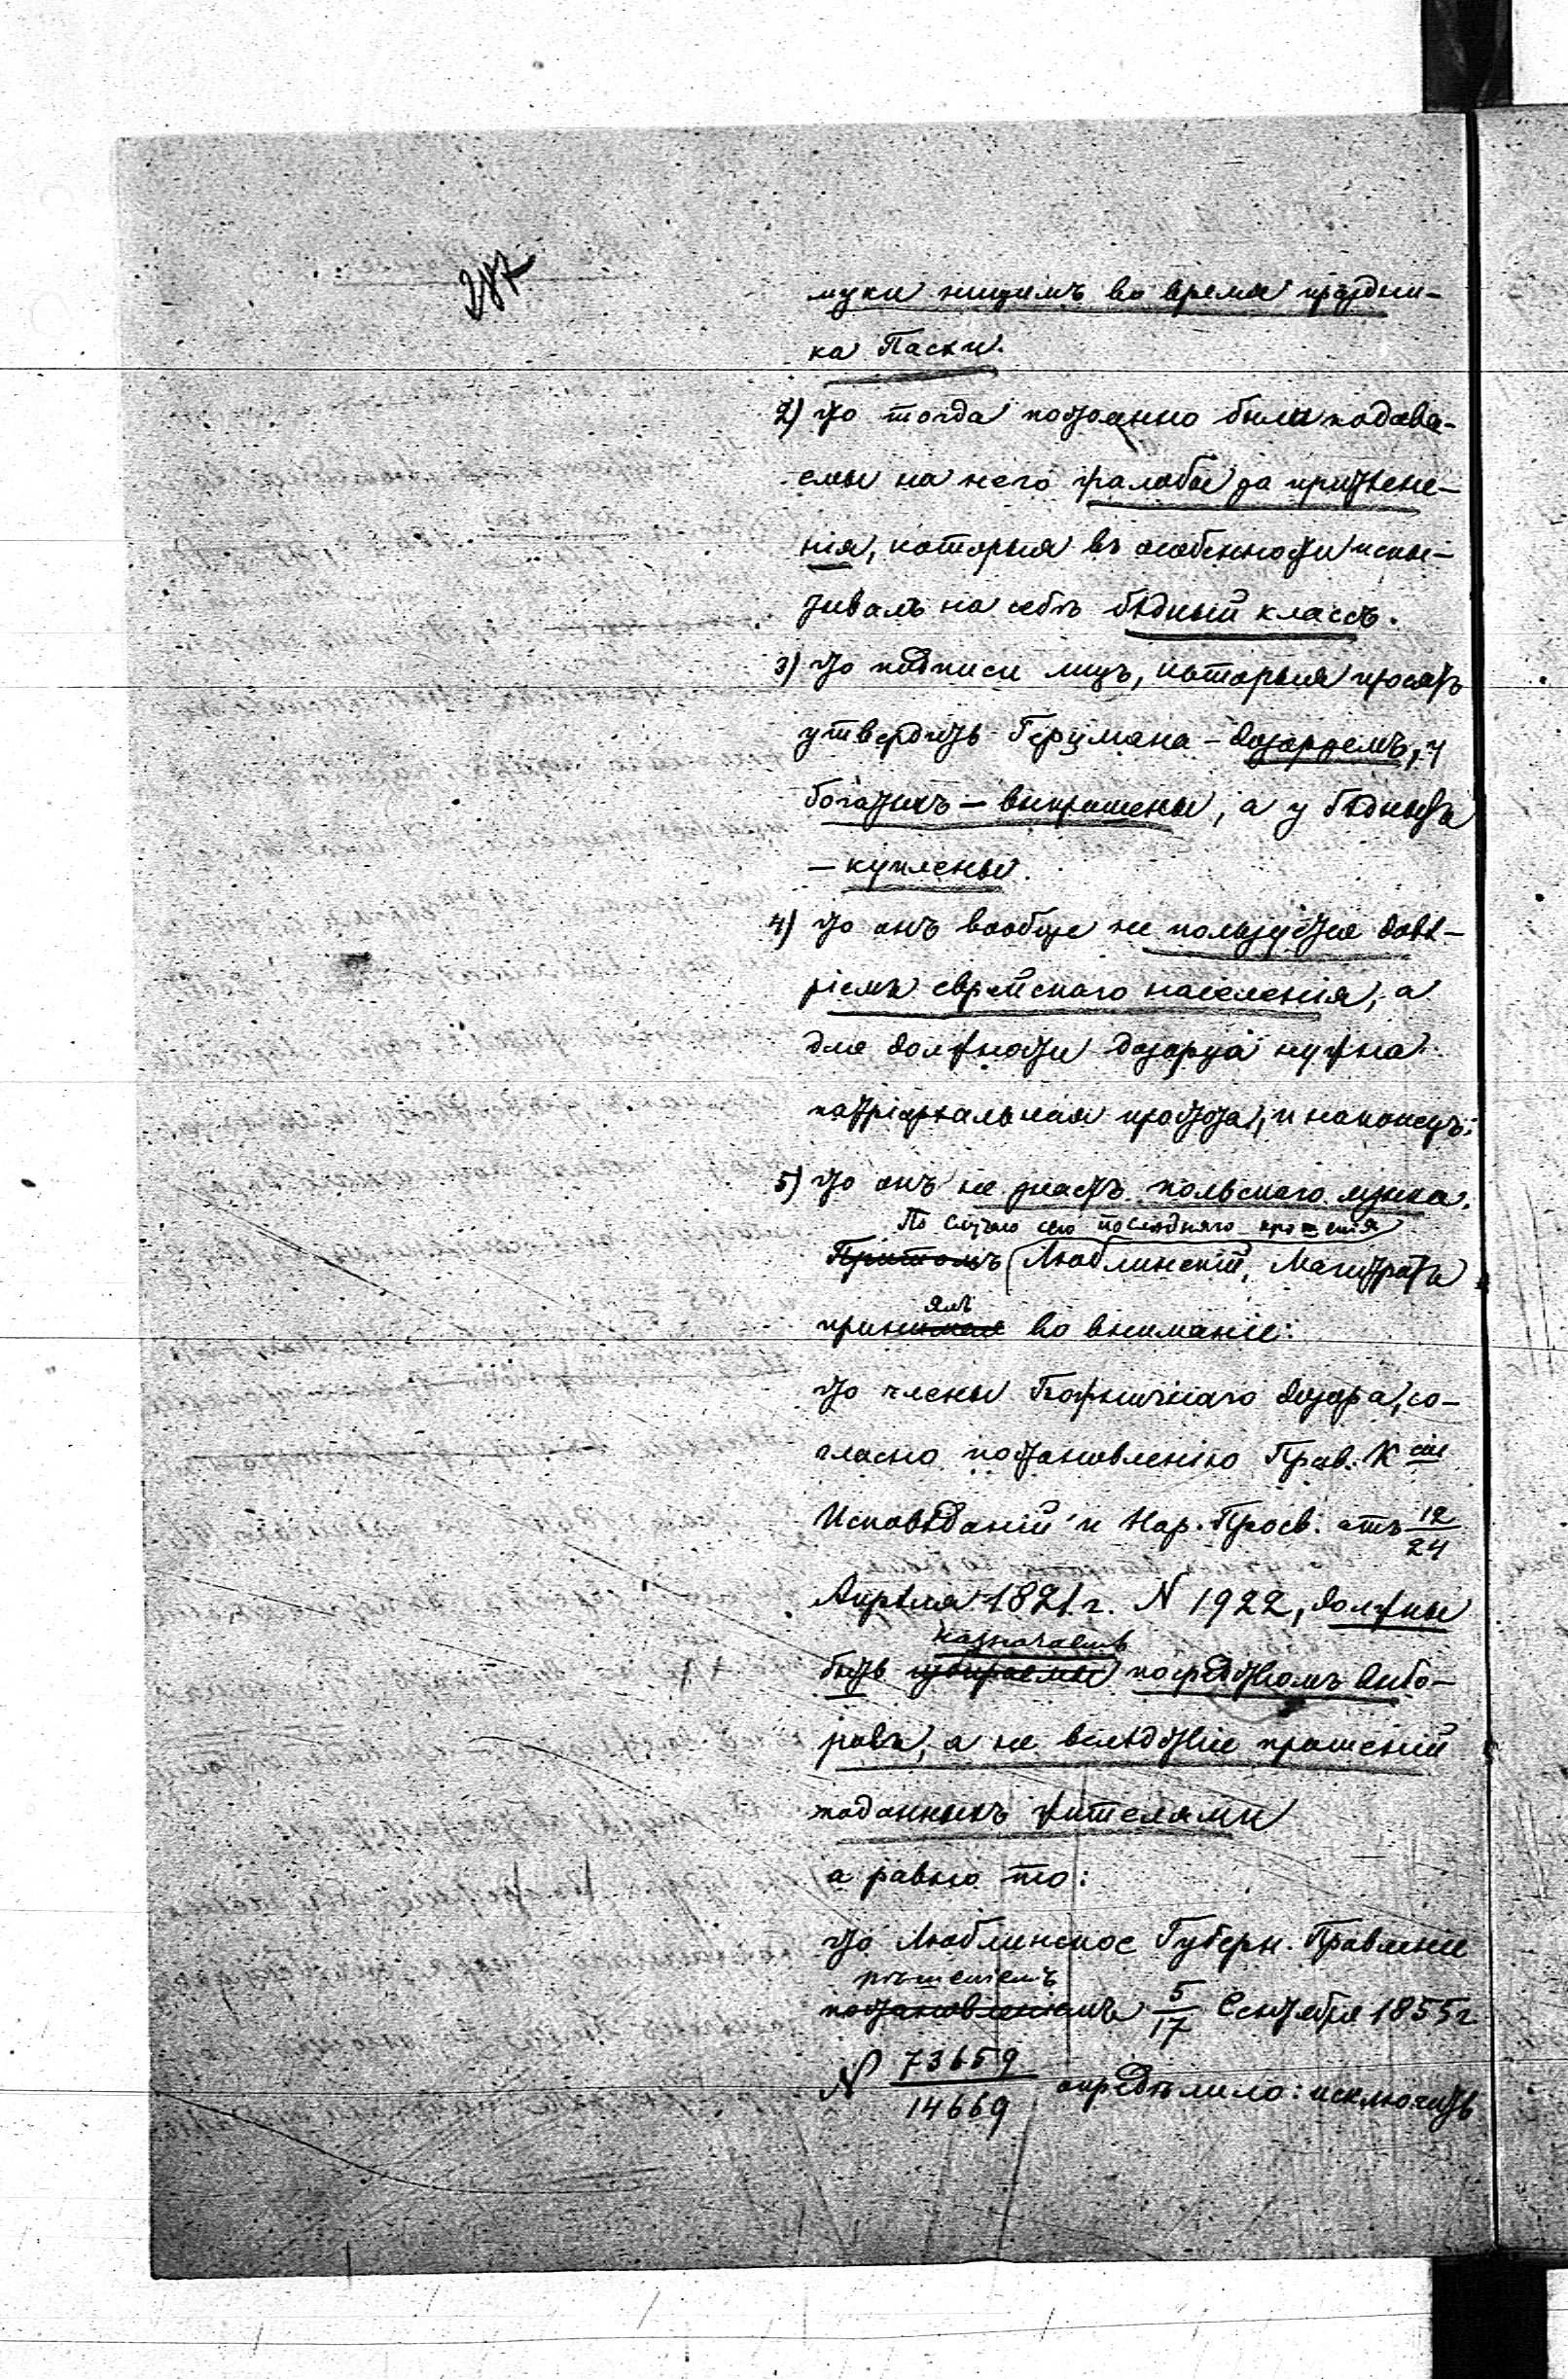 287
муки нищимъ во время праздни-
ка Пасхи.
2) что тогда постоянно были подава-
емы на него жалобы за притѣсне-
нія, которыя въ особенности испы-
тивалъ на себѣ бѣдный классъ.
3) что подписи лицъ, которыя просятъ
утвердить Герцмана – дозорцемъ, у
богатыхъ – выпрошены, а у бѣдныхъ
– куплены.
4) что онъ вообще не пользуется довѣ-
ріемъ еврейскаго населенія, а
для должности дозорца нужна
патріархальная простота, и наконецъ:
5) что онъ не знаетъ польскаго языка.
По случаю сего послѣдняго прошенія
Притомъ Люблинскій Магистратъ
ялъ
принимая во вниманіе:
что члены Божничнаго дозора, со-
гласно постановленію Прав. К сіи
Исповѣданій и Нар. Просв. отъ 12/24
Апрѣля 1821 г. N 1922, должны
назначаемъ
быть избираемы посредствомъ выбо-
ровъ, а не вслѣдствіе прошеній
поданныхъ жителями
а равно то:
что Люблинское Губерн. Правленіе
рѣшеніемъ
постановленіемъ 5/17 Сентября 1855 г.
N 73659/14669 опредѣлило: исключить